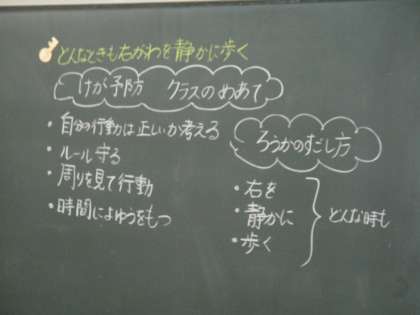 どんなときも右がわを静かに歩く
けが予防 クラスのめあて
・自分の行動は正しいか考える
・ルール守る
・周りを見て行動
・時間によゆうをもつ
ろうかのすごし方
・右を
・静かに
・歩く
どんな時も